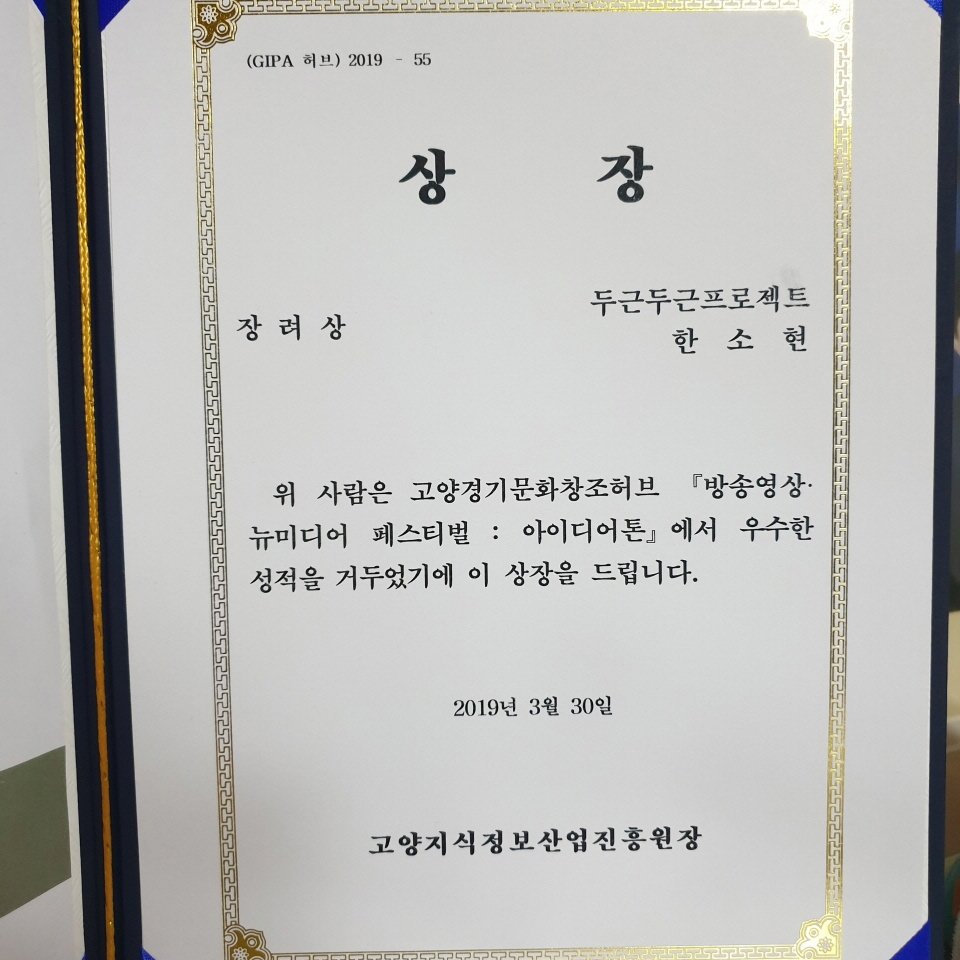 (GIPA 허브) 2019 - 55
상 장
두근두근프로젝트
장 려 상
한 소 현
위 사람은 고양경기문화창조허브 『방송영상·
뉴미디어 페스티벌 : 아이디어톤』에서 우수한
성적을 거두었기에 이 상장을 드립니다.
2019년 3월 30일
고양지식정보산업진흥원장